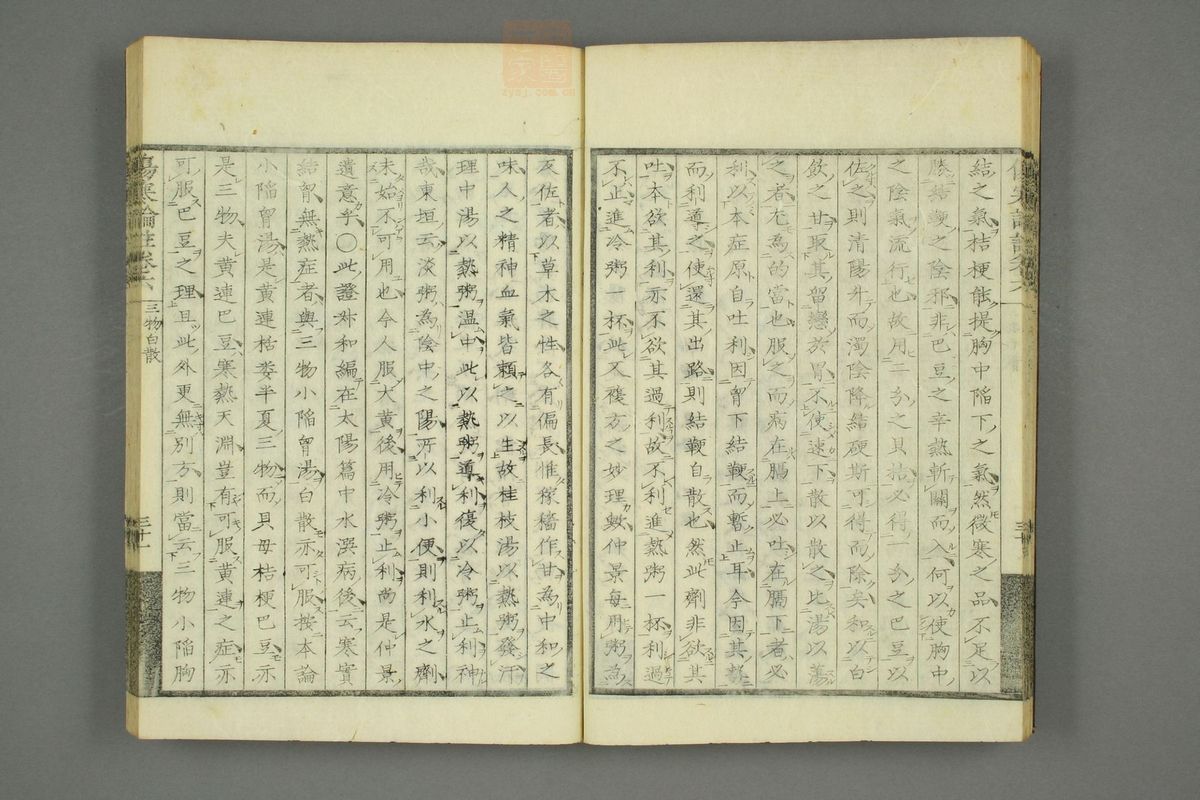 結之氣桔梗能提胸中陷下之氣然微寒之品不足以
勝結鞕之陰邪非巴豆之辛熱斬關而入何以使胸中
之陰氣流行也故用二分之貝拈必得一分之巴豆以
佐之則清陽升而濁陰降結硬斯可得而除矣和以白
飲之甘取其留戀於胃不使速下散以散之比湯以蕩
之者尤為的當也服之而病在膈上必吐在膈下者必
利以本症原自吐利因胷下結鞕而暫止耳今因其勢
而利導之使還其出路則結鞕自散也然此劑非欲其
吐本欲其利亦不欲其過利故不利進熱粥一杯利過
不止進冷粥一杯此又複方之妙理歟仲景每用粥為
反佐者以草木之性各有偏長惟稼穡作甘為中和之
味人之精神血氣皆賴之以生故桂枝湯以熱粥發汗
理中湯以熱粥温中此以熱粥導利復以冷粥止利神
哉東垣云淡粥為陰中之陽所以利小便則利水之劑
未始不可用也今人服大黄後用冷粥止利尚是仲景
遺意乎○此證叔和編在太陽篇中水潠病後云寒實
結胷無熱症者與三物小陷胷湯白散亦可服按本論
小陷胷湯是黄連栝蔞半夏三物而貝母桔梗巴豆亦
是三物夫黄連巴豆寒熱天淵豈有可服黄連之症亦
可服巴豆之理且此外更無別方則當云三物小陷胸
傷寒論註卷六
三物白散
三十一